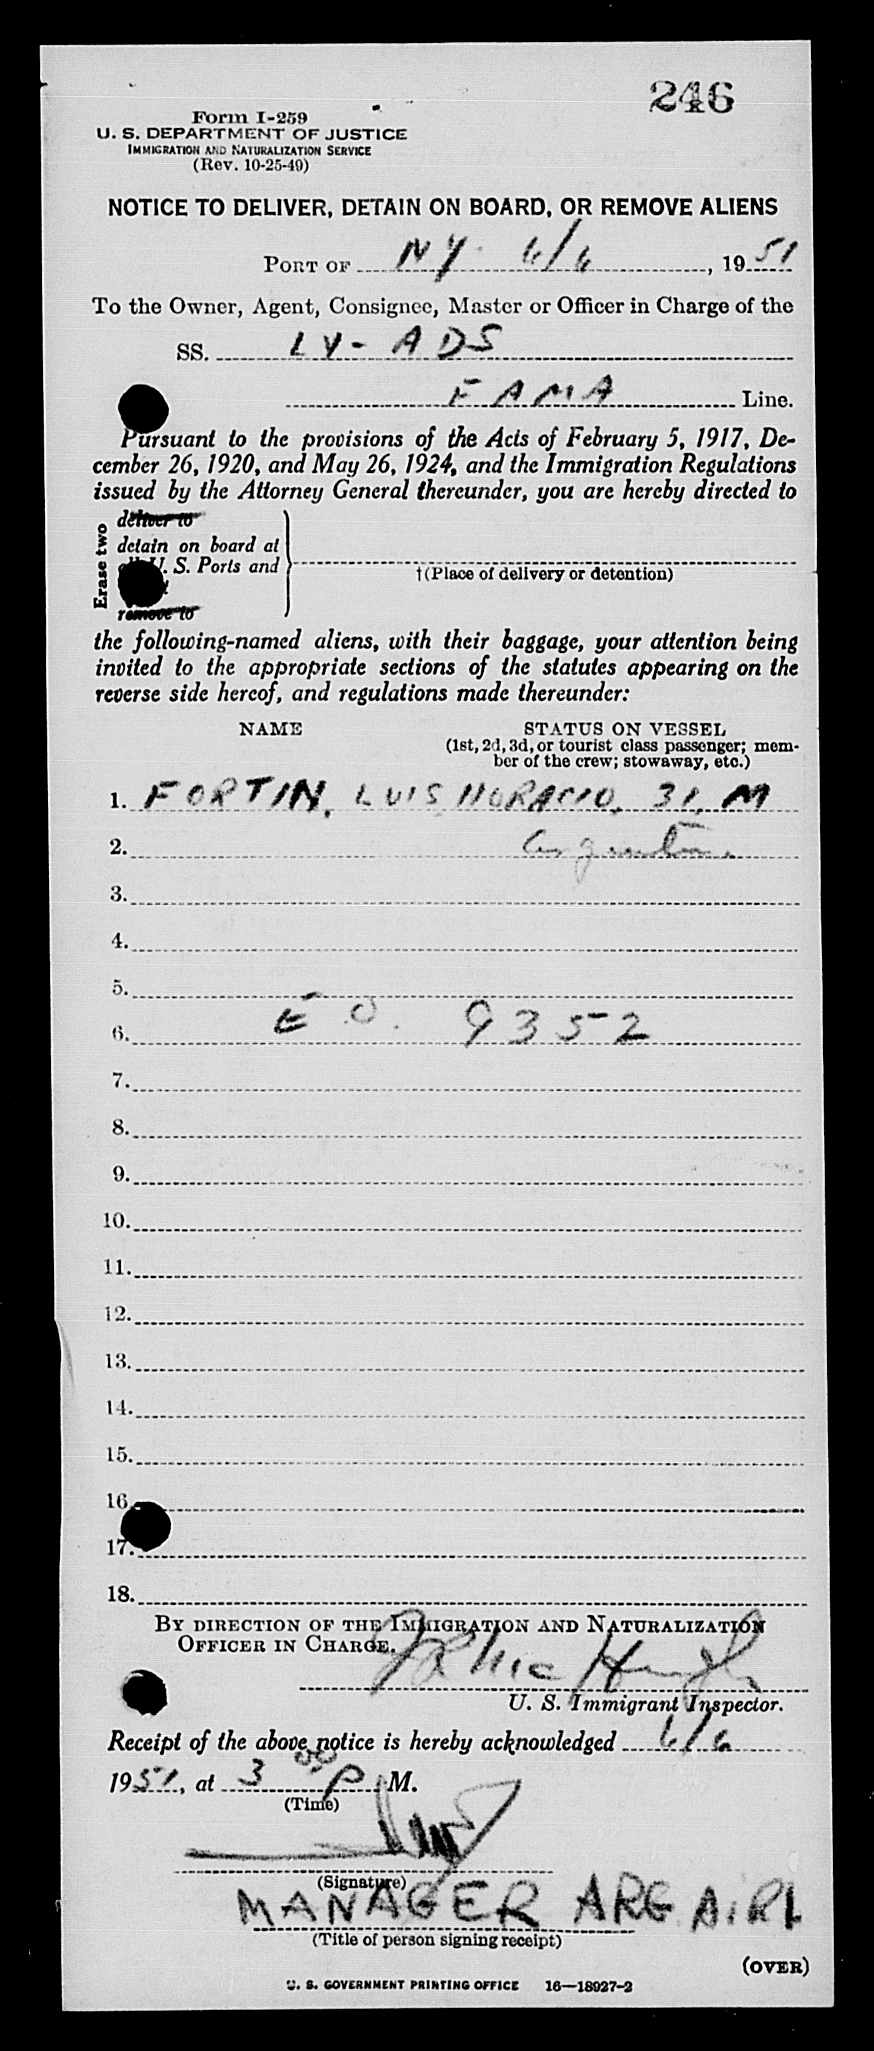 246
Form I-259
U. S. DEPARTMENT OF JUSTICE
IMMIGRATION AND NATURALIZATION SERVICE
(Rev. 10-25-49)
NOTICE TO DELIVER, DETAIN ON BOARD, OR REMOVE ALIENS
PORT OF NY 6/6, 1951
To the Owner, Agent, Consignee, Master or Officer in Charge of the
SS. LV-ADS
FAMA Line.
Pursuant to the provisions of the Acts of February 5, 1917, De-
cember 26, 1920, and May 26, 1924, and the Immigration Regulations
issued by the Attorney General thereunder, you are hereby directed to
Erase two
deliver to
detain on board at
U. S. Ports and
remove to
†(Place of delivery or detention)
the following-named aliens, with their baggage, your attention being
invited to the appropriate sections of the statutes appearing on the
reverse side hereof, and regulations made thereunder:
NAME STATUS ON VESSEL
(1st, 2d, 3d, or tourist class passenger; mem-
ber of the crew; stowaway, etc.)
1. FORTIN, LUIS HORACIO, 31, M
2. Argentine
3.
4.
5.
6. E O. 9352
7.
8.
9.
10.
11.
12.
13.
14.
15.
16.
17.
18.
BY DIRECTION OF THE IMMIGRATION AND NATURALIZATION
OFFICER IN CHARGE.
U. S. Immigrant Inspector.
Receipt of the above notice is hereby acknowledged 6/6
1951, at 3 00 P. M.
(Time)
(Signature)
MANAGER ARG AIRL
(Title of person signing receipt)
(OVER)
U. S. GOVERNMENT PRINTING OFFICE 16—18927-2